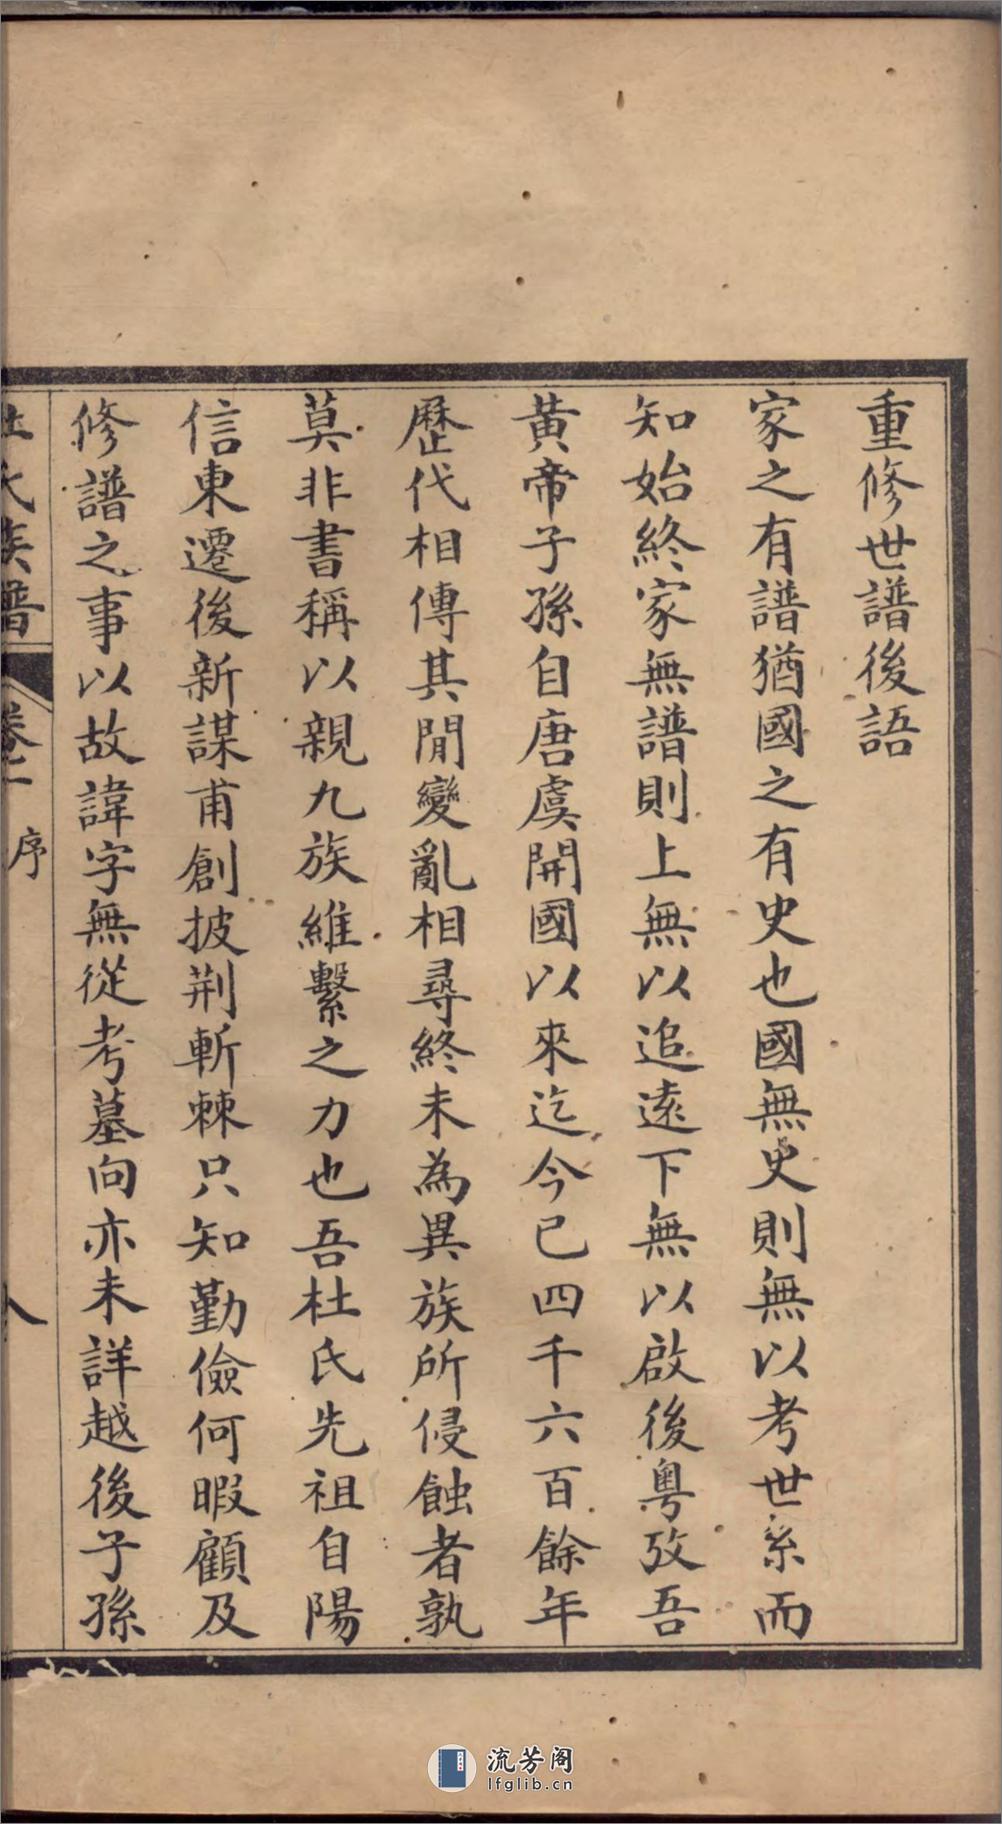 重修世譜後語
家之有譜猶國之有史也國無史則無以考世系而
知始終家無譜則上無以追遠下無以啟後粵攷吾
黃帝子孫自唐虞開國以來迄今已四千六百餘年
歷代相傳其閒變亂相尋終未為異族所侵蝕者孰
莫非書稱以親九族維繫之力也吾杜氏先祖自陽
信東遷後新謀甫創披荆斬棘只知勤儉何暇顧及
修譜之事以故諱字無從考墓向亦未詳越後子孫
杜氏族譜 卷一 序 八
流芳阁
lfglib.cn